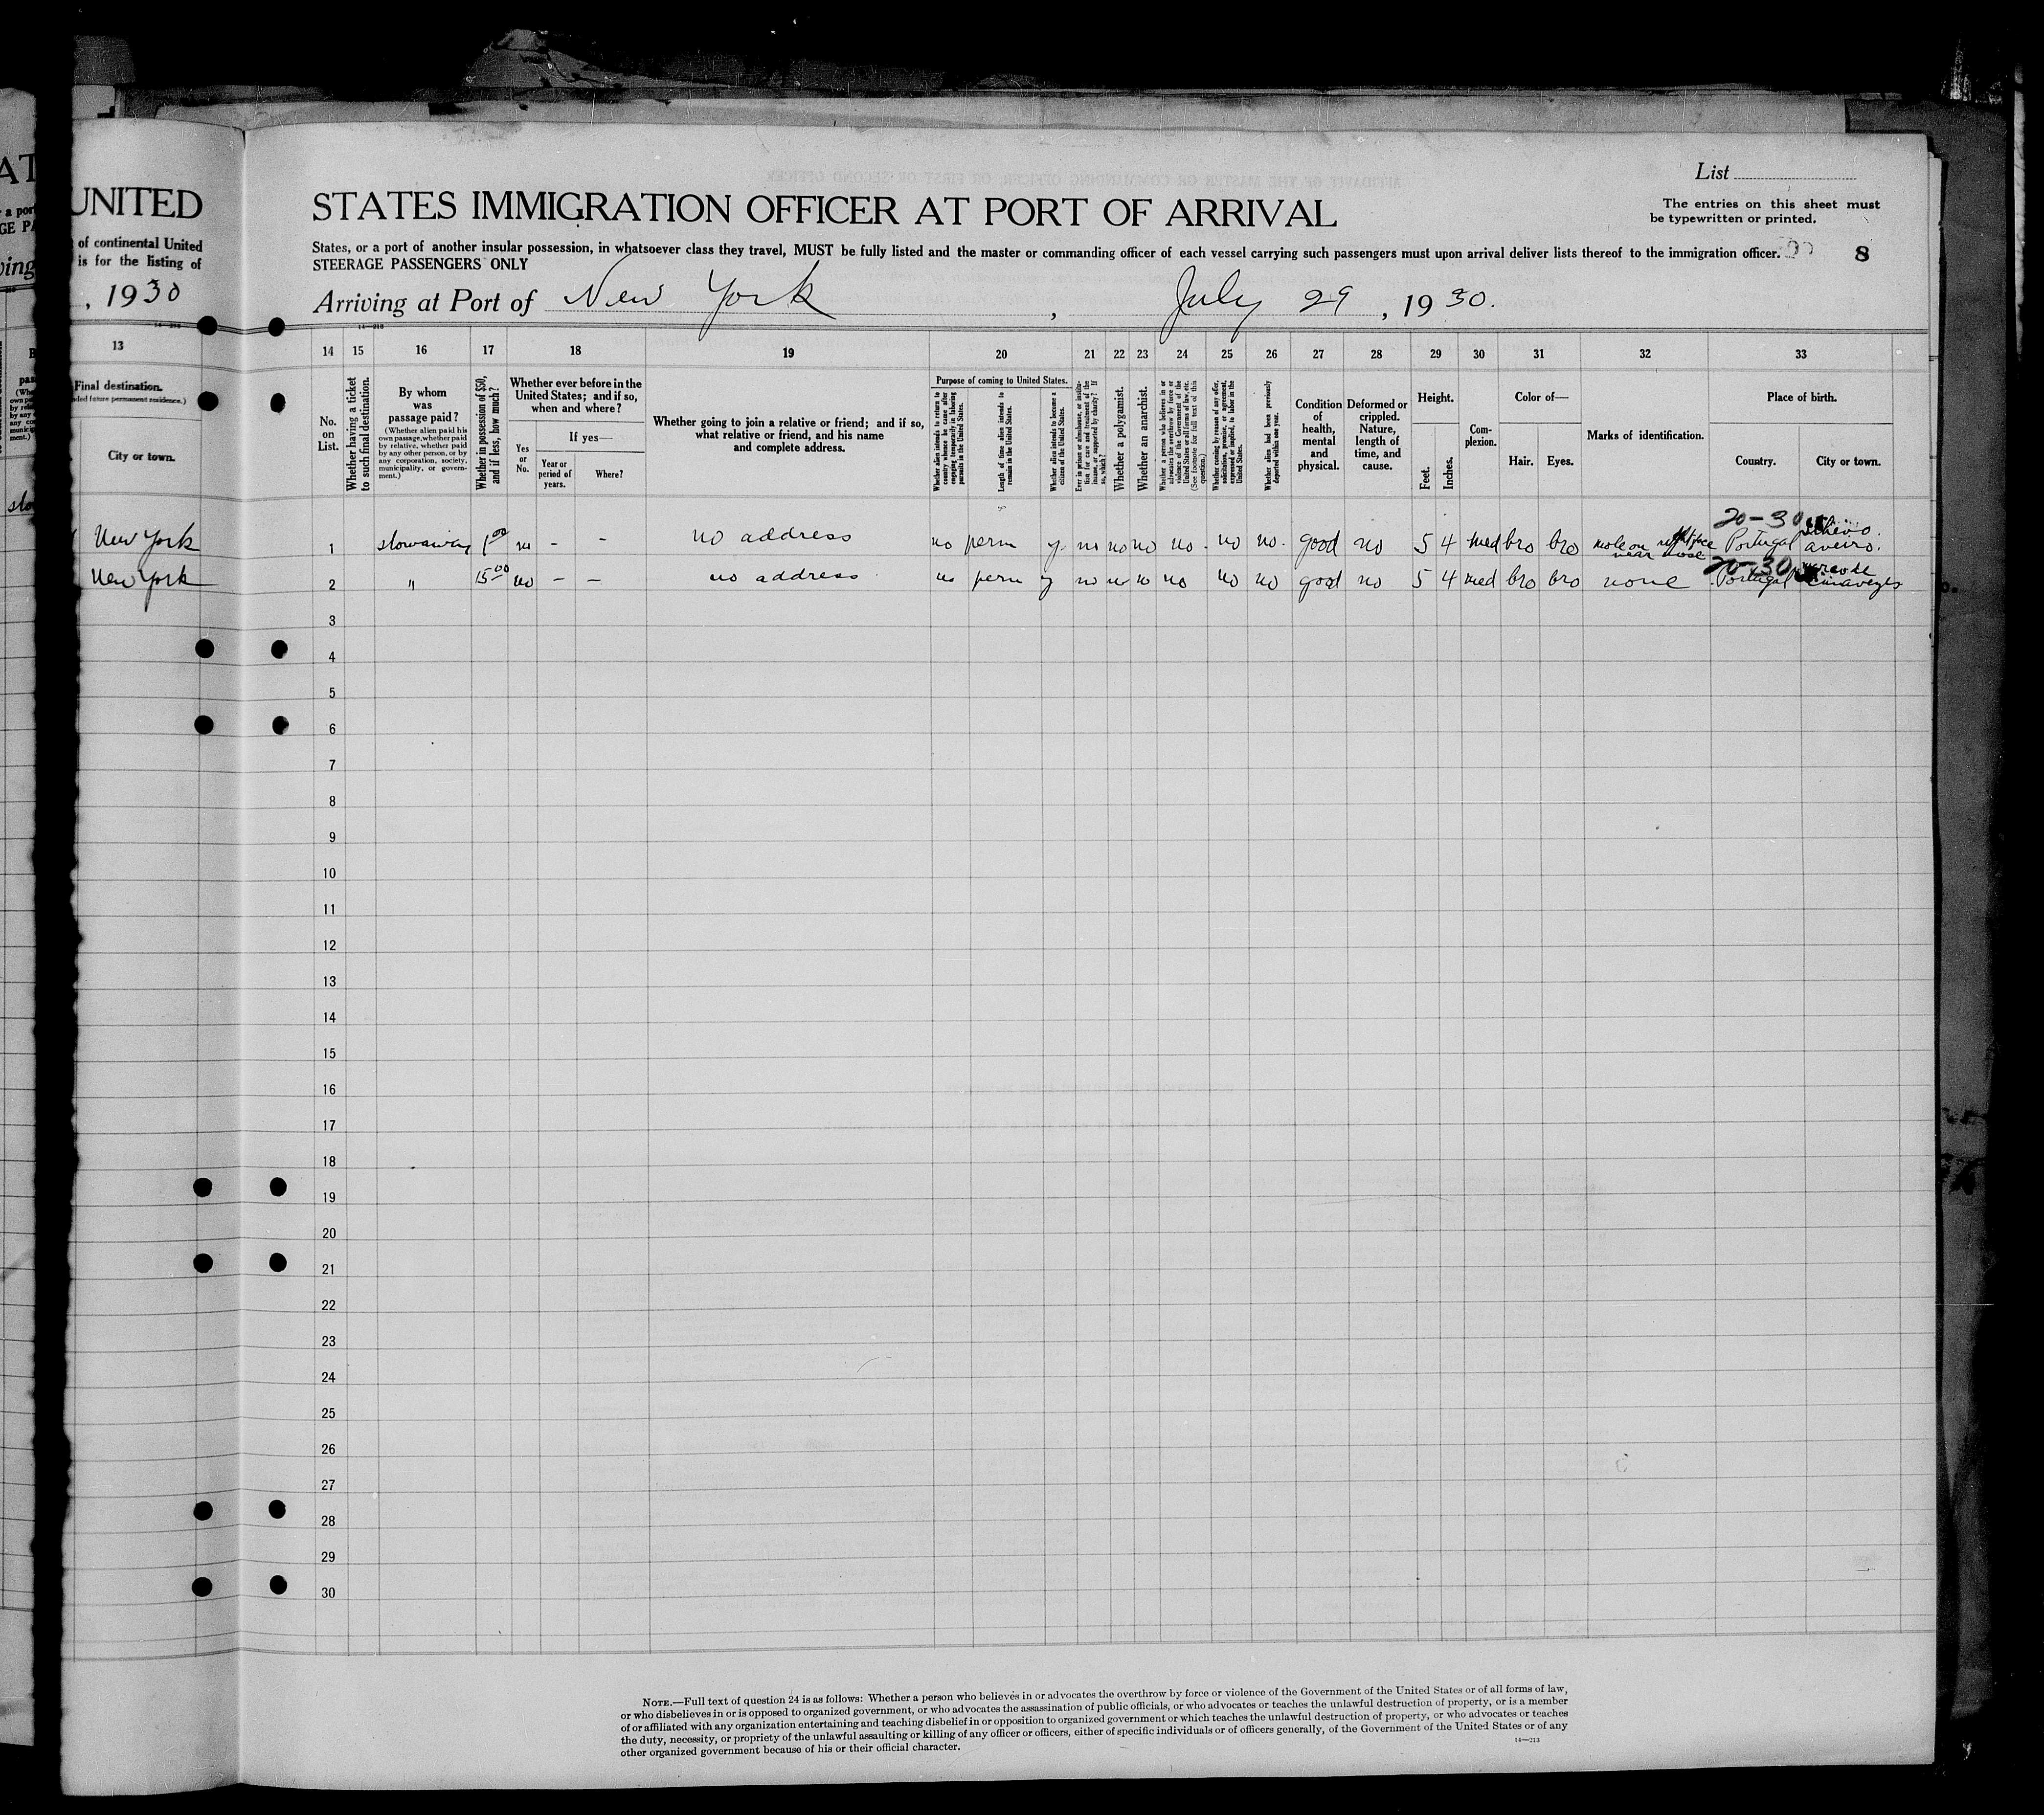 List
The entries on this sheet must
be typewritten or printed.
UNITED
STATES IMMIGRATION OFFICER AT PORT OF ARRIVAL
of continental United
is for the listing of
States, or a port of another insular possession, in whatsoever class they travel, MUST be fully listed and the master or commanding officer of each vessel carrying such passengers must upon arrival deliver lists thereof to the immigration officer.
STEERAGE PASSENGERS ONLY
8
, 1930
Arriving at Port of New York, July 29, 1930.
13 14 15 16 17 18 19 20 21 22 23 24 25 26 27 28 29 30 31 32 33
Final destination.
City or town.
No. on List.
Whether having a ticket to such final destination.
By whom was passage paid?
(Whether alien paid his own passage, whether paid by relative, whether paid by any other person, or by any corporation, society, municipality, or government.)
Whether in possession of $50, and if less, how much?
Whether ever before in the United States; and if so, when and where?
Yes or No.
If yes—
Year or period of years.
Where?
Whether going to join a relative or friend; and if so, what relative or friend, and his name and complete address.
Purpose of coming to United States.
Whether alien intends to return to country whence he came after engaging temporarily in laboring pursuits in the United States.
Length of time alien intends to remain in the United States.
Whether alien intends to become a citizen of the United States.
Ever in prison or almshouse, or institution for care and treatment of the insane, or supported by charity? If so, which?
Whether a polygamist.
Whether an anarchist.
Whether a person who believes in or advocates the overthrow by force or violence of the Government of the United States or all forms of law, etc. (See footnote for full text of this question.)
Whether coming by reason of any offer, solicitation, promise, or agreement, expressed or implied, to labor in the United States.
Whether alien had been previously deported within one year.
Condition of health, mental and physical.
Deformed or crippled. Nature, length of time, and cause.
Height.
Feet.
Inches.
Complexion.
Color of—
Hair.
Eyes.
Marks of identification.
Place of birth.
Country.
City or town.
20-30
New York 1 stowaway 1.00 no - - no address no perm y no no no no no no good no 5 4 med bro bro mole on right face near nose Portugal aveiro.
20-30
New York 2 " 15.00 no - - no address no perm y no no no no no no good no 5 4 med bro bro none Portugal
3
4
5
6
7
8
9
10
11
12
13
14
15
16
17
18
19
20
21
22
23
24
25
26
27
28
29
30
NOTE.—Full text of question 24 is as follows: Whether a person who believes in or advocates the overthrow by force or violence of the Government of the United States or of all forms of law,
or who disbelieves in or is opposed to organized government, or who advocates the assassination of public officials, or who advocates or teaches the unlawful destruction of property, or is a member
of or affiliated with any organization entertaining and teaching disbelief in or opposition to organized government or which teaches the unlawful destruction of property, or who advocates or teaches
the duty, necessity, or propriety of the unlawful assaulting or killing of any officer or officers, either of specific individuals or of officers generally, of the Government of the United States or of any
other organized government because of his or their official character.
14—213